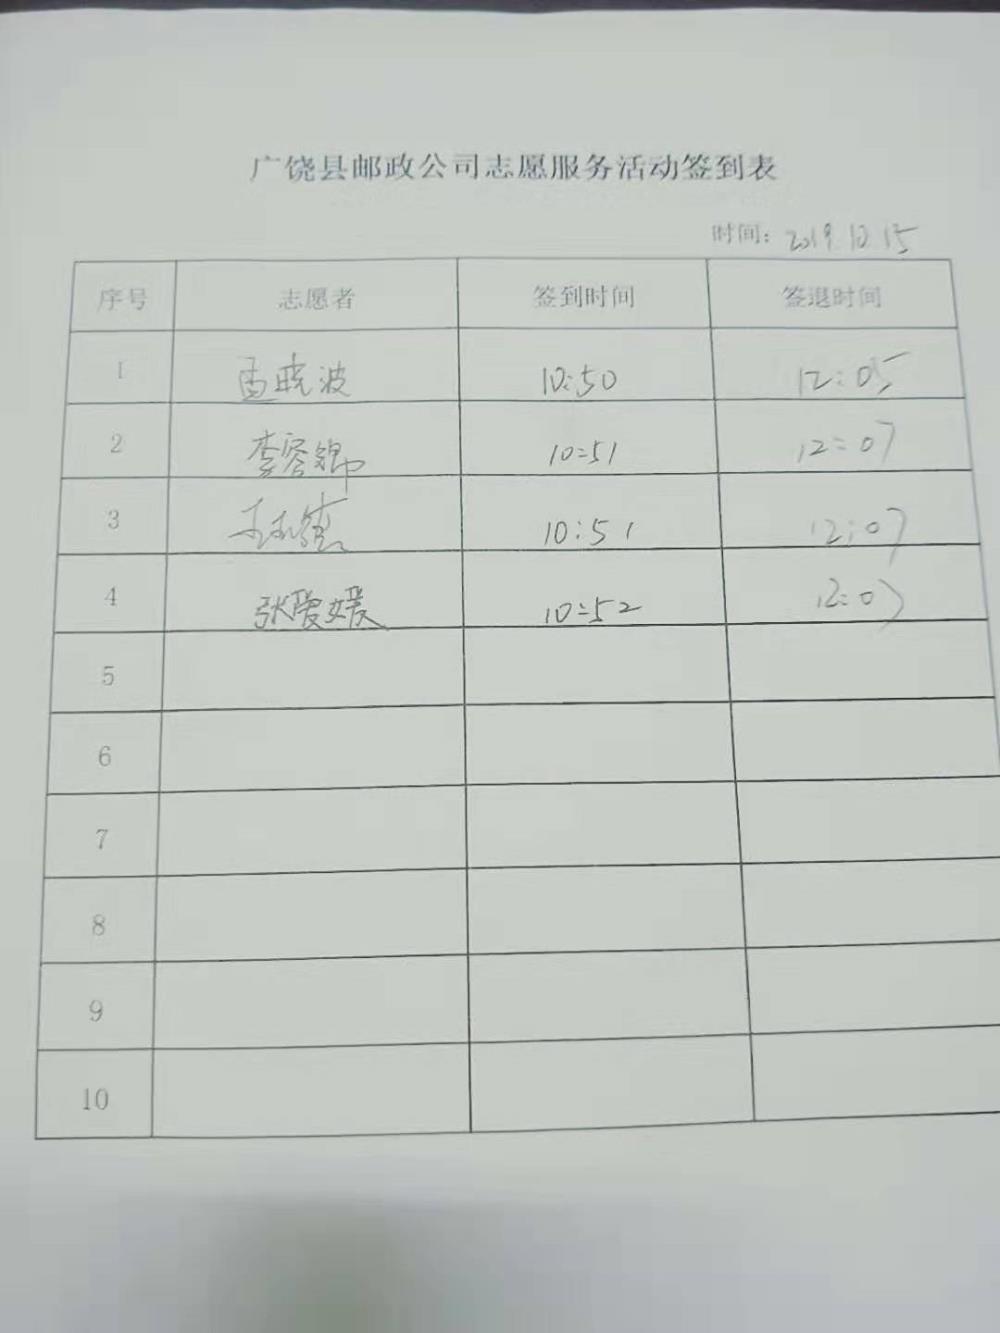 广饶县邮政公司志愿服务活动签到表
时间: 2019.10.15
序号 志愿者 签到时间 签退时间
1 孟晓波 10:50 12:05
2 李容锦 10:51 12:07
3 10:51 12:07
4 张爱媛 10:52 12:07
5
6
7
8
9
10